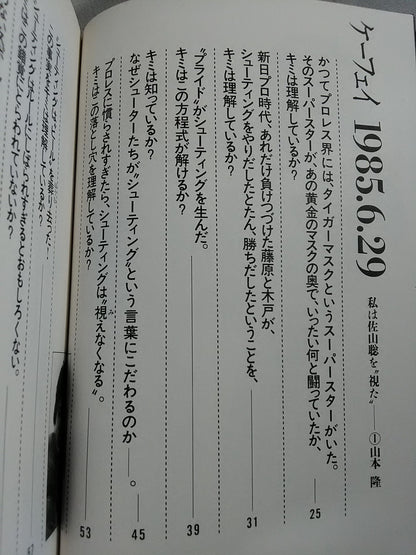 ケーフェイ 1985.6.29
私は佐山聡を“視た”——①山本 隆
かつてプロレス界には、タイガーマスクというスーパースターがいた。
そのスーパースターが、あの黄金のマスクの奥で、いったい何と闘っていたか、
キミは理解しているか? 25
新日プロ時代、あれだけ負けつづけた藤原と木戸が、
シューティングをやりだしたとたん、勝ちだしたということを、
キミは理解しているか? 31
“プライド”がシューティングを生んだ。
キミはこの方程式が解けるか? 39
キミは知っているか?
なぜシューターたちが“シューティング”という言葉にこだわるのか——。 45
プロレスに慣らされすぎたら、シューティングは“視えなくなる”。
キミはこの落とし穴を理解しているか? 53
ルールにしばられすぎるとおもしろくない。
にとらわれていないか?